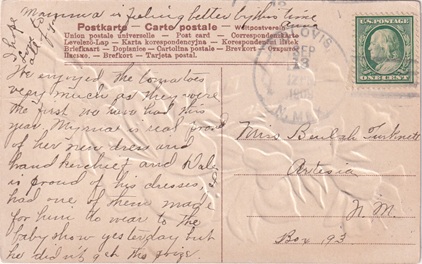 Mynna is feeling better by this time
Postkarte — Carte postale
Weltpostverein
Union postale universelle — Post card — Correspondenzkarte
Levelező-Lap — Karta korespondencyjna — Korespondenční lístek
Briefkaart — Dopisnice — Cartolina postale — Brevkort
Brefkort — Tarjeta postal.
CLOVIS
SEP
13
N. MEX.
ONE CENT
We enjoyed the tomatoes
very much as they were
the first we have had this
year. Mynna is real proud
of her new dress and
handkerchief and Dale
is proud of his dresses, I
had one of them made
for him to wear to the
baby show yesterday but
he didn't get the prize.
Mrs Beulah Turknett
Artesia
N. M.
Box 193